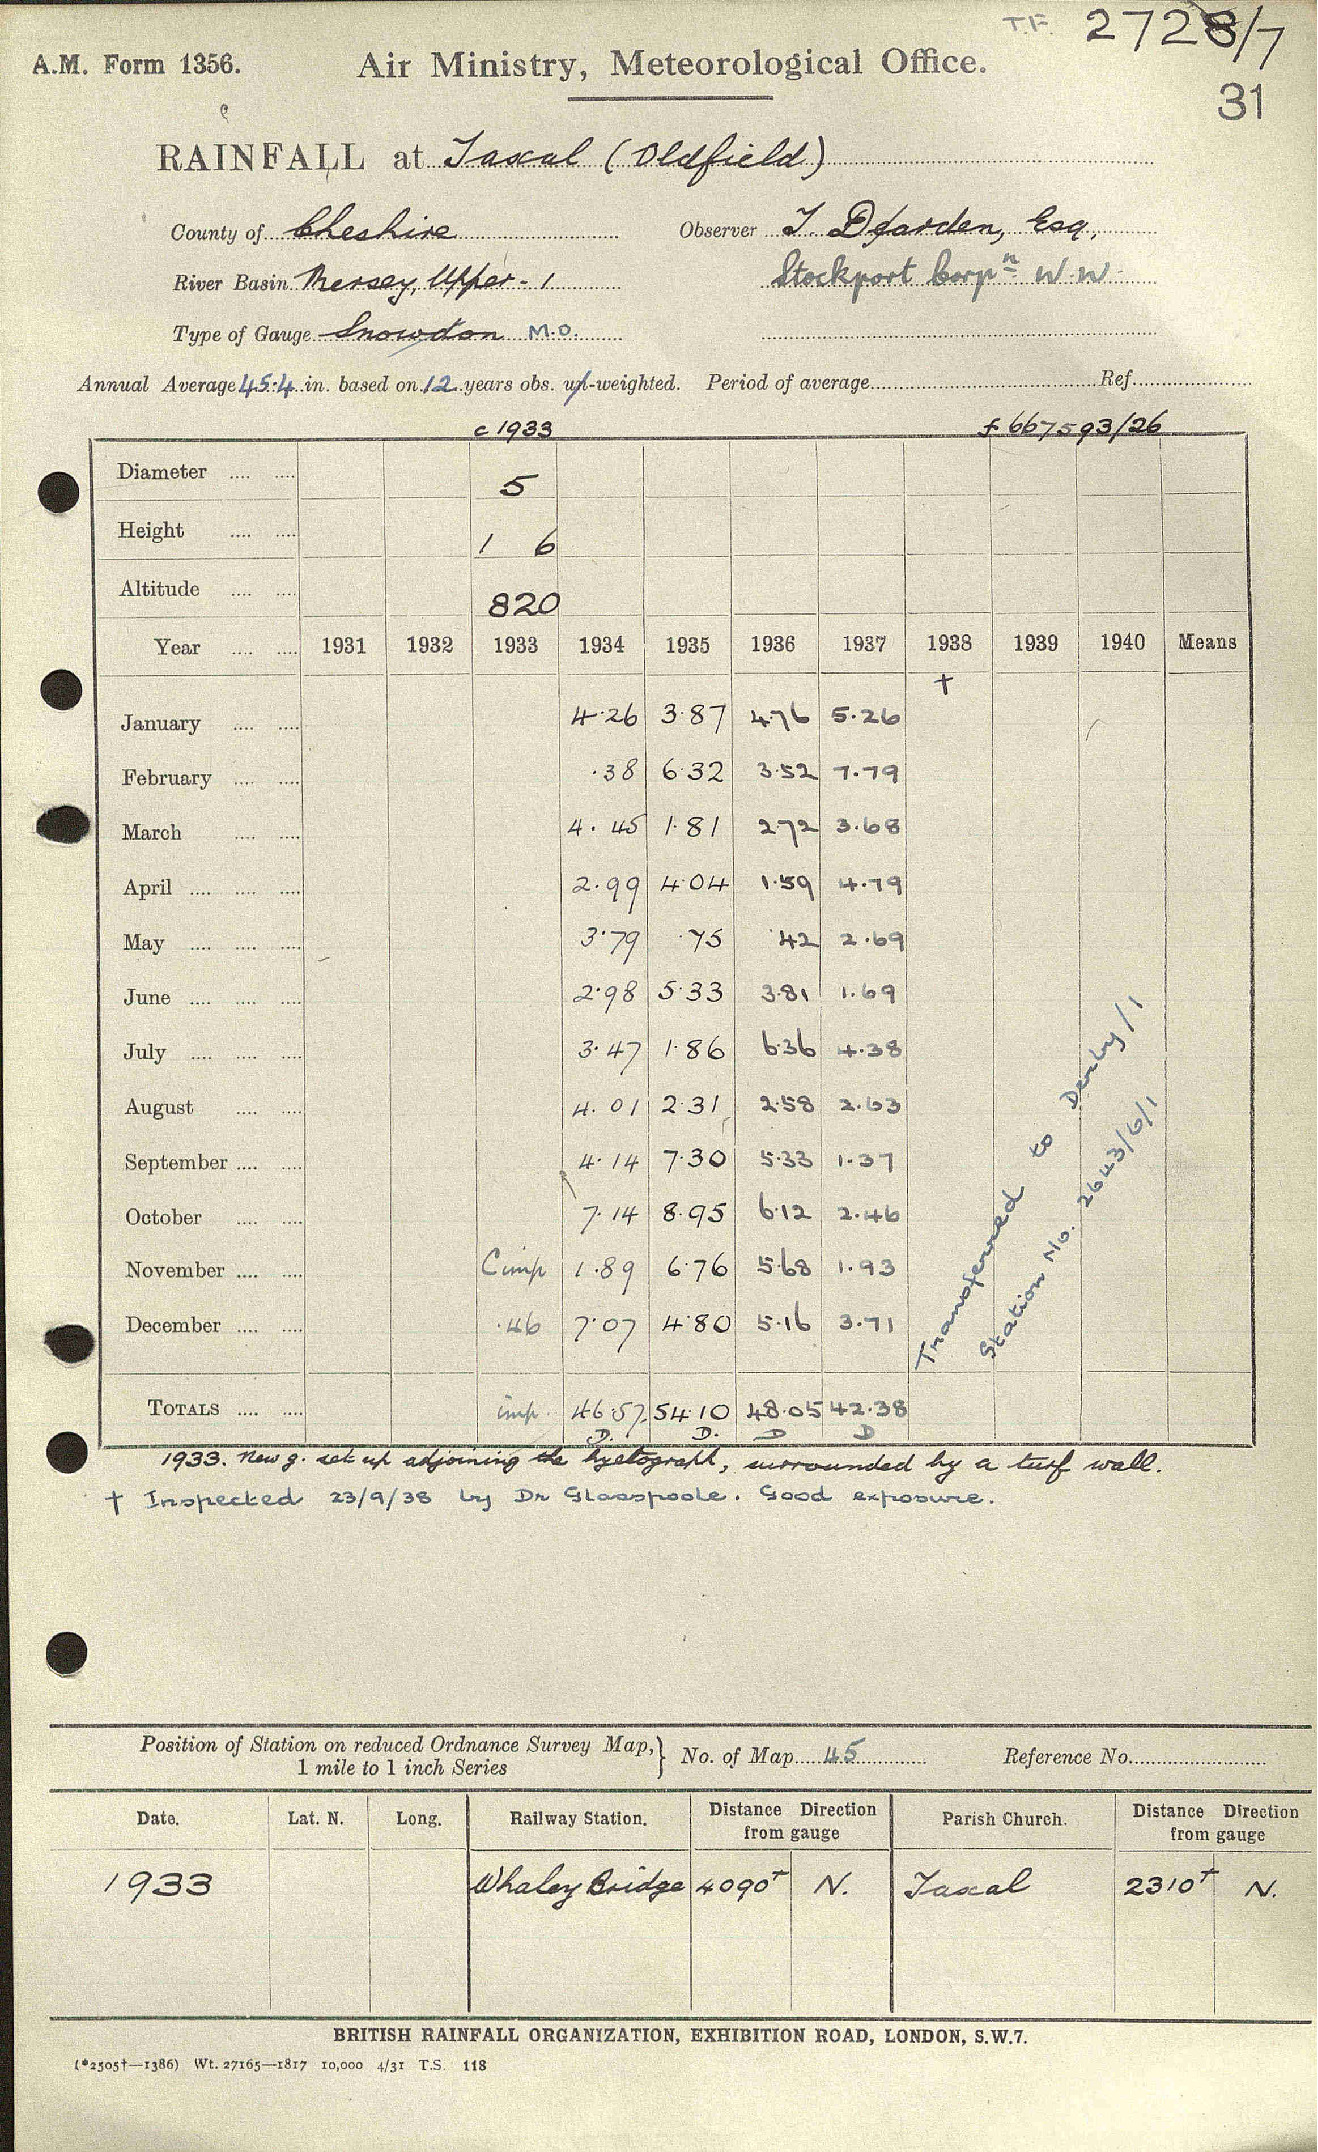 T.F. 2728/7
A.M. Form 1356. Air Ministry, Meteorological Office.
31
RAINFALL at Taxal (Oldfield)
County of Cheshire Observer T. Dearden, Esq,
River Basin Mersey, Upper - 1 Stockport Corpn W.W
Type of Gauge Snowdon M.O.
Annual Average 45.4 in. based on 12 years obs. un-weighted. Period of average Ref.
c 1933 f 667593/26
Diameter 5
Height 1 6
Altitude 820
Year 1931 1932 1933 1934 1935 1936 1937 1938 1939 1940 Means
†
January 4.26 3.87 4.76 5.26
February .38 6.32 3.52 7.79
March 4.45 1.81 2.72 3.68
April 2.99 4.04 1.59 4.79
May 3.79 .75 .42 2.69
June 2.98 5.33 3.81 1.69
July 3.47 1.86 6.36 4.38
August 4.01 2.31 2.58 2.63
September 4.14 7.30 5.33 1.37
October 7.14 8.95 6.12 2.46
November Cimp 1.89 6.76 5.68 1.93
December .46 7.07 4.80 5.16 3.71
Transferred to Derby/1
Station No. 2643/6/1
TOTALS imp. 46.57 54.10 48.05 42.38
D. D. D D
1933. New g. set up adjoining the hyetograph, surrounded by a turf wall.
† Inspected 23/9/38 by Dr Glasspoole. Good exposure.
Position of Station on reduced Ordnance Survey Map,} No. of Map 45 Reference No.
1 mile to 1 inch Series
Date. Lat. N. Long. Railway Station. Distance Direction from gauge Parish Church. Distance Direction from gauge
1933 Whaley Bridge 4090† N. Taxal 2310† N.
BRITISH RAINFALL ORGANIZATION, EXHIBITION ROAD, LONDON, S.W.7.
(*2505†—1386) Wt. 27165—1817 10,000 4/31 T.S. 118